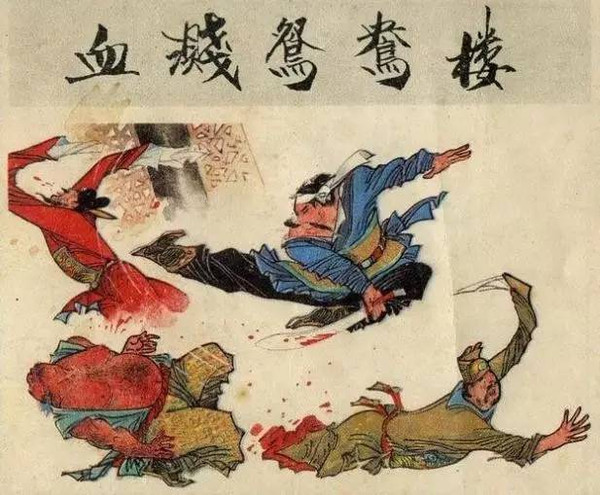 血濺鴛鴦楼